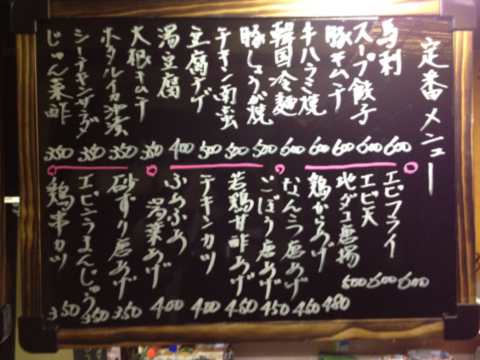 定番メニュー
馬刺 600
スープ餃子 600
豚キムチ 600
牛ハラミ焼 600
韓国冷麺 600
豚しょうが焼 500
チキン南蛮 500
豆腐チゲ 500
湯豆腐 400
大根キムチ 350
ホタルイカ沖漬 350
シーチキンサラダ 350
じゅん菜酢 350
エビフライ 600
エビ天 600
地ダコ唐揚 500
鶏からあげ 480
なんこつ唐あげ 450
ごぼう唐あげ 450
若鶏甘酢あげ 450
チキンカツ 400
ふあふあ湯葉あげ 400
砂ずり唐あげ 350
エビシうまんじゅう 350
鶏串カツ 350